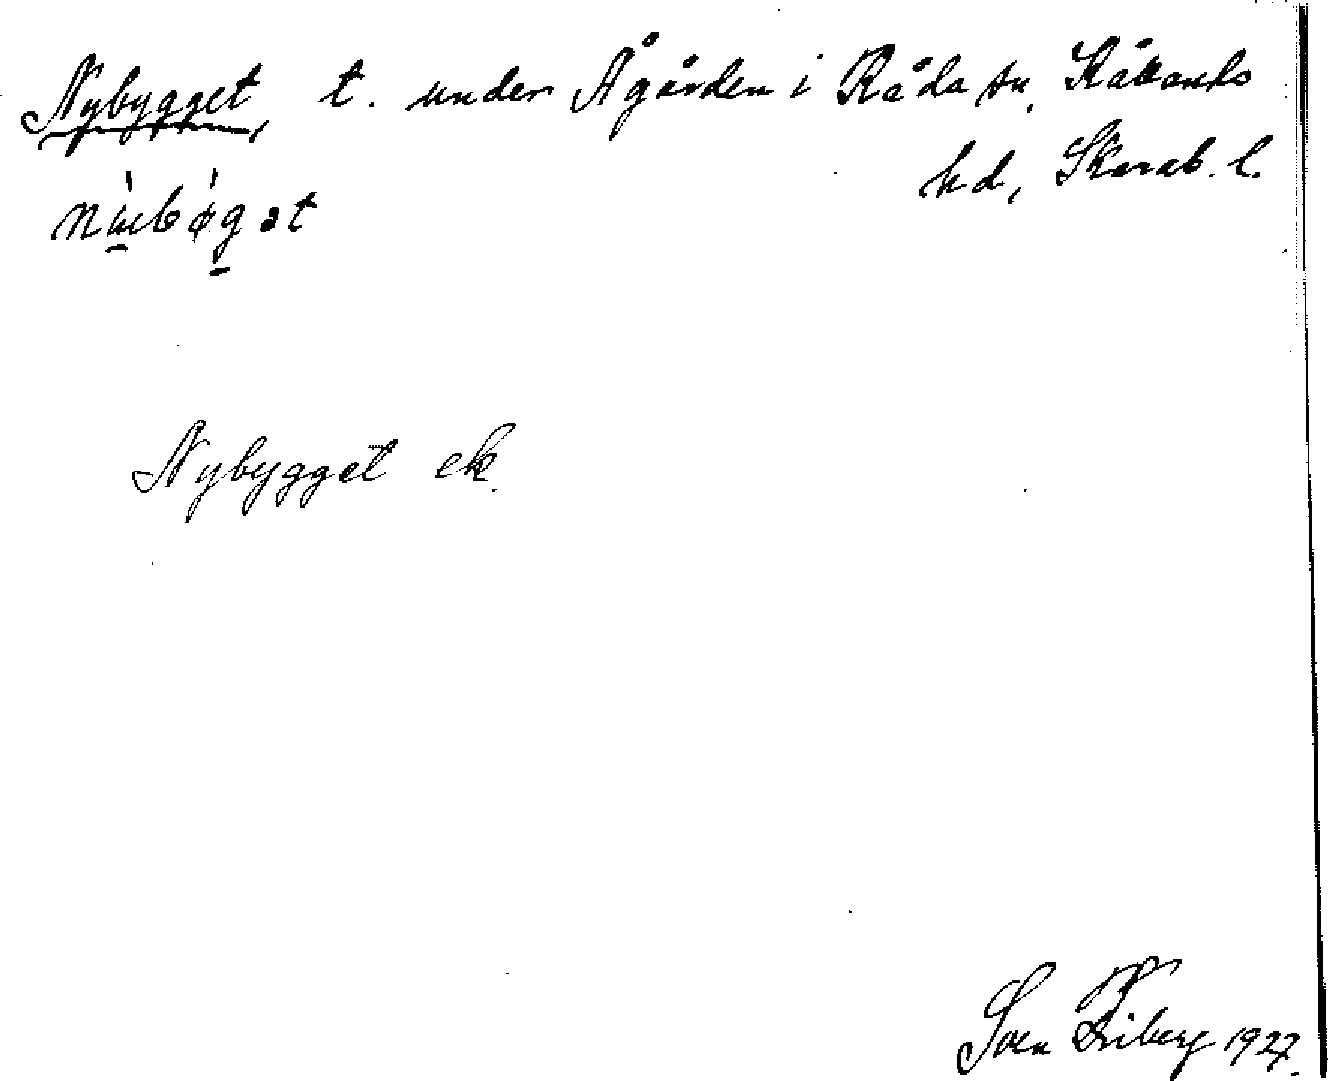 Nybygget, t. under Ågården i Råda sn, Kållands
hd, Skarab. l.
Nybygget ek.
Sven Friberg 1927.